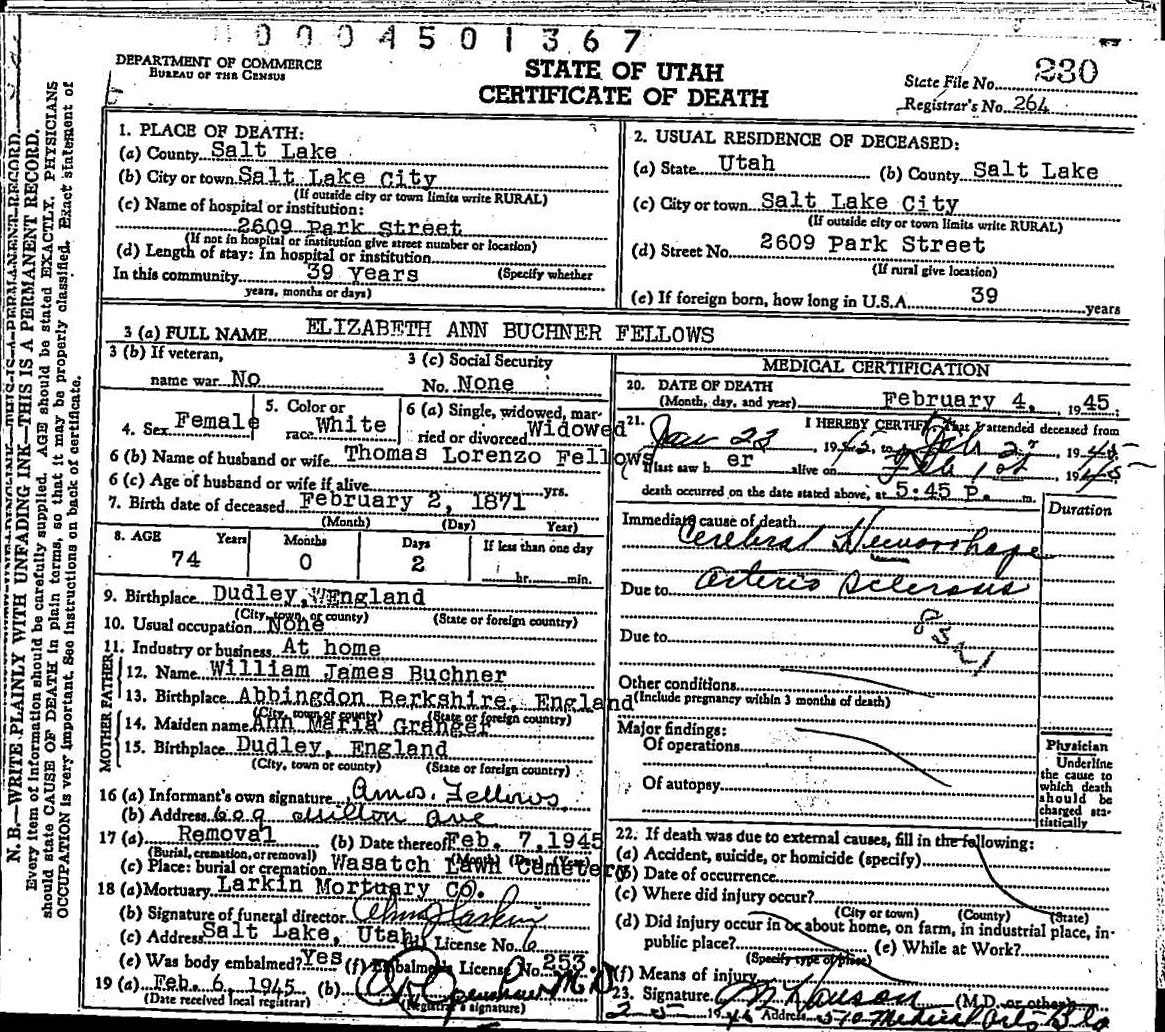 0004501367
DEPARTMENT OF COMMERCE
BUREAU OF THE CENSUS
STATE OF UTAH
CERTIFICATE OF DEATH
State File No. 230
Registrar's No. 264
N. B.—WRITE PLAINLY WITH UNFADING INK—THIS IS A PERMANENT RECORD.
Every item of information should be carefully supplied. AGE should be stated EXACTLY. PHYSICIANS
should state CAUSE OF DEATH in plain terms, so that it may be properly classified. Exact statement of
OCCUPATION is very important. See instructions on back of certificate.
1. PLACE OF DEATH:
(a) County Salt Lake
(b) City or town Salt Lake City
(If outside city or town limits write RURAL)
(c) Name of hospital or institution:
2609 Park Street
(If not in hospital or institution give street number or location)
(d) Length of stay: In hospital or institution
In this community 39 Years (Specify whether
years, months or days)
2. USUAL RESIDENCE OF DECEASED:
(a) State Utah (b) County Salt Lake
(c) City or town Salt Lake City
(If outside city or town limits write RURAL)
(d) Street No. 2609 Park Street
(If rural give location)
(e) If foreign born, how long in U.S.A. 39 years
3 (a) FULL NAME ELIZABETH ANN BUCHNER FELLOWS
3 (b) If veteran, 3 (c) Social Security
name war No No. None
4. Sex Female 5. Color or race White 6 (a) Single, widowed, married or divorced Widowed
6 (b) Name of husband or wife Thomas Lorenzo Fellows
6 (c) Age of husband or wife if alive yrs.
7. Birth date of deceased February 2, 1871
(Month) (Day) Year)
8. AGE Years Months Days If less than one day
74 0 2 hr. min.
9. Birthplace Dudley, England
(City, town, or county) (State or foreign country)
10. Usual occupation None
11. Industry or business At home
FATHER
12. Name William James Buchner
13. Birthplace Abbingdon Berkshire, England
(City, town or county) (State or foreign country)
MOTHER
14. Maiden name Ann Maria Granger
15. Birthplace Dudley, England
(City, town or county) (State or foreign country)
16 (a) Informant's own signature Amos Fellows
(b) Address 609 Milton Ave
17 (a) Removal (b) Date thereof Feb. 7, 1945
(Burial, cremation, or removal) (Month) (Day) (Year)
(c) Place: burial or cremation Wasatch Lawn Cemetery
18 (a) Mortuary Larkin Mortuary Co.
(b) Signature of funeral director
(c) Address Salt Lake, Utah License No. 6
(e) Was body embalmed? Yes (f) Embalmer's License No. 253
19 (a) Feb. 6, 1945 (b) Openshaw M.D
(Date received local registrar) (Registrar's signature)
MEDICAL CERTIFICATION
20. DATE OF DEATH
(Month, day, and year) February 4, 1945
21. I HEREBY CERTIFY That I attended deceased from
Jan 23, 1945, to Feb 2, 1945
I last saw h er alive on Feb 1st, 1945
death occurred on the date stated above, at 5:45 P. m.
Duration
Immediate cause of death
Cerebral Hemorrhage
Due to Arterio Sclerosis
Due to
Other conditions
(Include pregnancy within 3 months of death)
Major findings:
Of operations
Of autopsy
Physician
Underline
the cause to
which death
should be
charged sta-
tistically
22. If death was due to external causes, fill in the following:
(a) Accident, suicide, or homicide (specify)
(b) Date of occurrence
(c) Where did injury occur?
(City or town) (County) (State)
(d) Did injury occur in or about home, on farm, in industrial place, in-
public place? (e) While at Work?
(Specify type of place)
(f) Means of injury
23. Signature (M.D. or other)
Address 510 Medical Arts Bldg